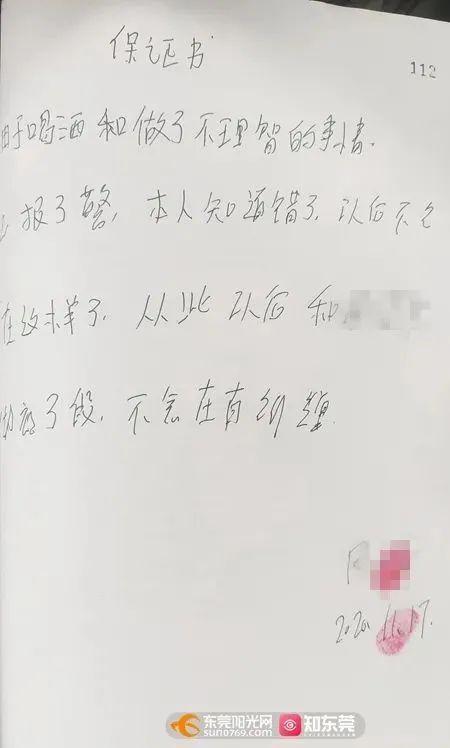 保证书
112
由于喝酒和做了不理智的事情.
报了警, 本人知道错了, 以后不会
在这样了, 从此以后和
彻底了段, 不会在有纠缠
2020.11.17.
东莞阳光网 知东莞
sun0769.com